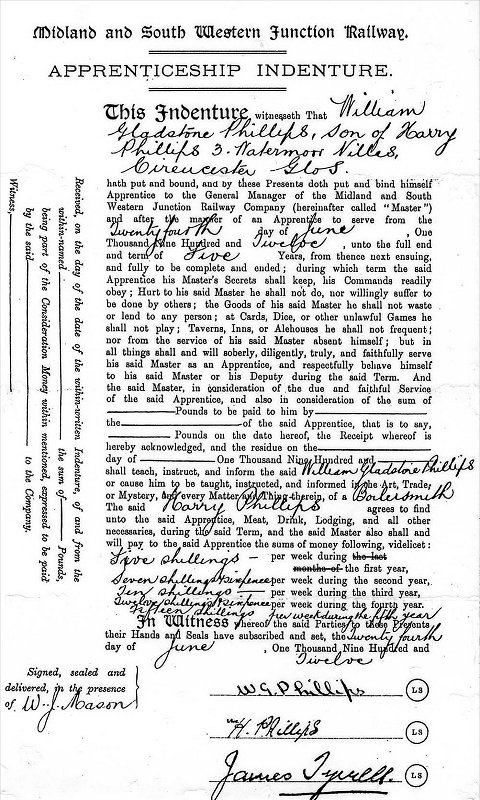 Midland and South Western Junction Railway.
APPRENTICESHIP INDENTURE.
This Indenture witnesseth That William
Gladstone Phillips, Son of Harry
Phillips 3. Watermoor Villas,
Cirencester Glos.
hath put and bound, and by these Presents doth put and bind himself
Apprentice to the General Manager of the Midland and South
Western Junction Railway Company (hereinafter called "Master")
and after the manner of an Apprentice to serve from the
Twenty fourth day of June, One
Thousand Nine Hundred and Twelve, unto the full end
and term of Five Years, from thence next ensuing,
and fully to be complete and ended; during which term the said
Apprentice his Master's Secrets shall keep, his Commands readily
obey; Hurt to his said Master he shall not do, nor willingly suffer to
be done by others; the Goods of his said Master he shall not waste
or lend to any person; at Cards, Dice, or other unlawful Games he
shall not play; Taverns, Inns, or Alehouses he shall not frequent;
nor from the service of his said Master absent himself; but in
all things shall and will soberly, diligently, truly, and faithfully serve
his said Master as an Apprentice, and respectfully behave himself
to his said Master or his Deputy during the said Term. And
the said Master, in consideration of the due and faithful Service
of the said Apprentice, and also in consideration of the sum of
Pounds to be paid to him by
the of the said Apprentice, that is to say,
Pounds on the date hereof, the Receipt whereof is
hereby acknowledged, and the residue on the
day of One Thousand Nine Hundred and
shall teach, instruct, and inform the said William Gladstone Phillips
or cause him to be taught, instructed, and informed in the Art, Trade,
or Mystery, and every Matter and Thing therein, of a Boilersmith
The said Harry Phillips agrees to find
unto the said Apprentice, Meat, Drink, Lodging, and all other
necessaries, during the said Term, and the said Master also shall and
will pay to the said Apprentice the sums of money following, videlicet:
Five shillings - per week during the last
months of the first year,
Seven shillings & sixpence per week during the second year,
Ten shillings per week during the third year,
Twelve shillings & sixpence per week during the fourth year.
Fifteen shillings per week during the fifth year
In Witness whereof the said Parties to these Presents
their Hands and Seals have subscribed and set, the Twenty fourth
day of June, One Thousand Nine Hundred and
Twelve
Signed, sealed and
delivered, in the presence
of W. J. Mason
W G Phillips LS
H. Phillips LS
James Tyrrell. LS
Received, on the day of the date of the within-written Indenture, of and from the
within-named the sum of Pounds,
being part of the Consideration Money within mentioned, expressed to be paid
by the said to the Company.
Witness,